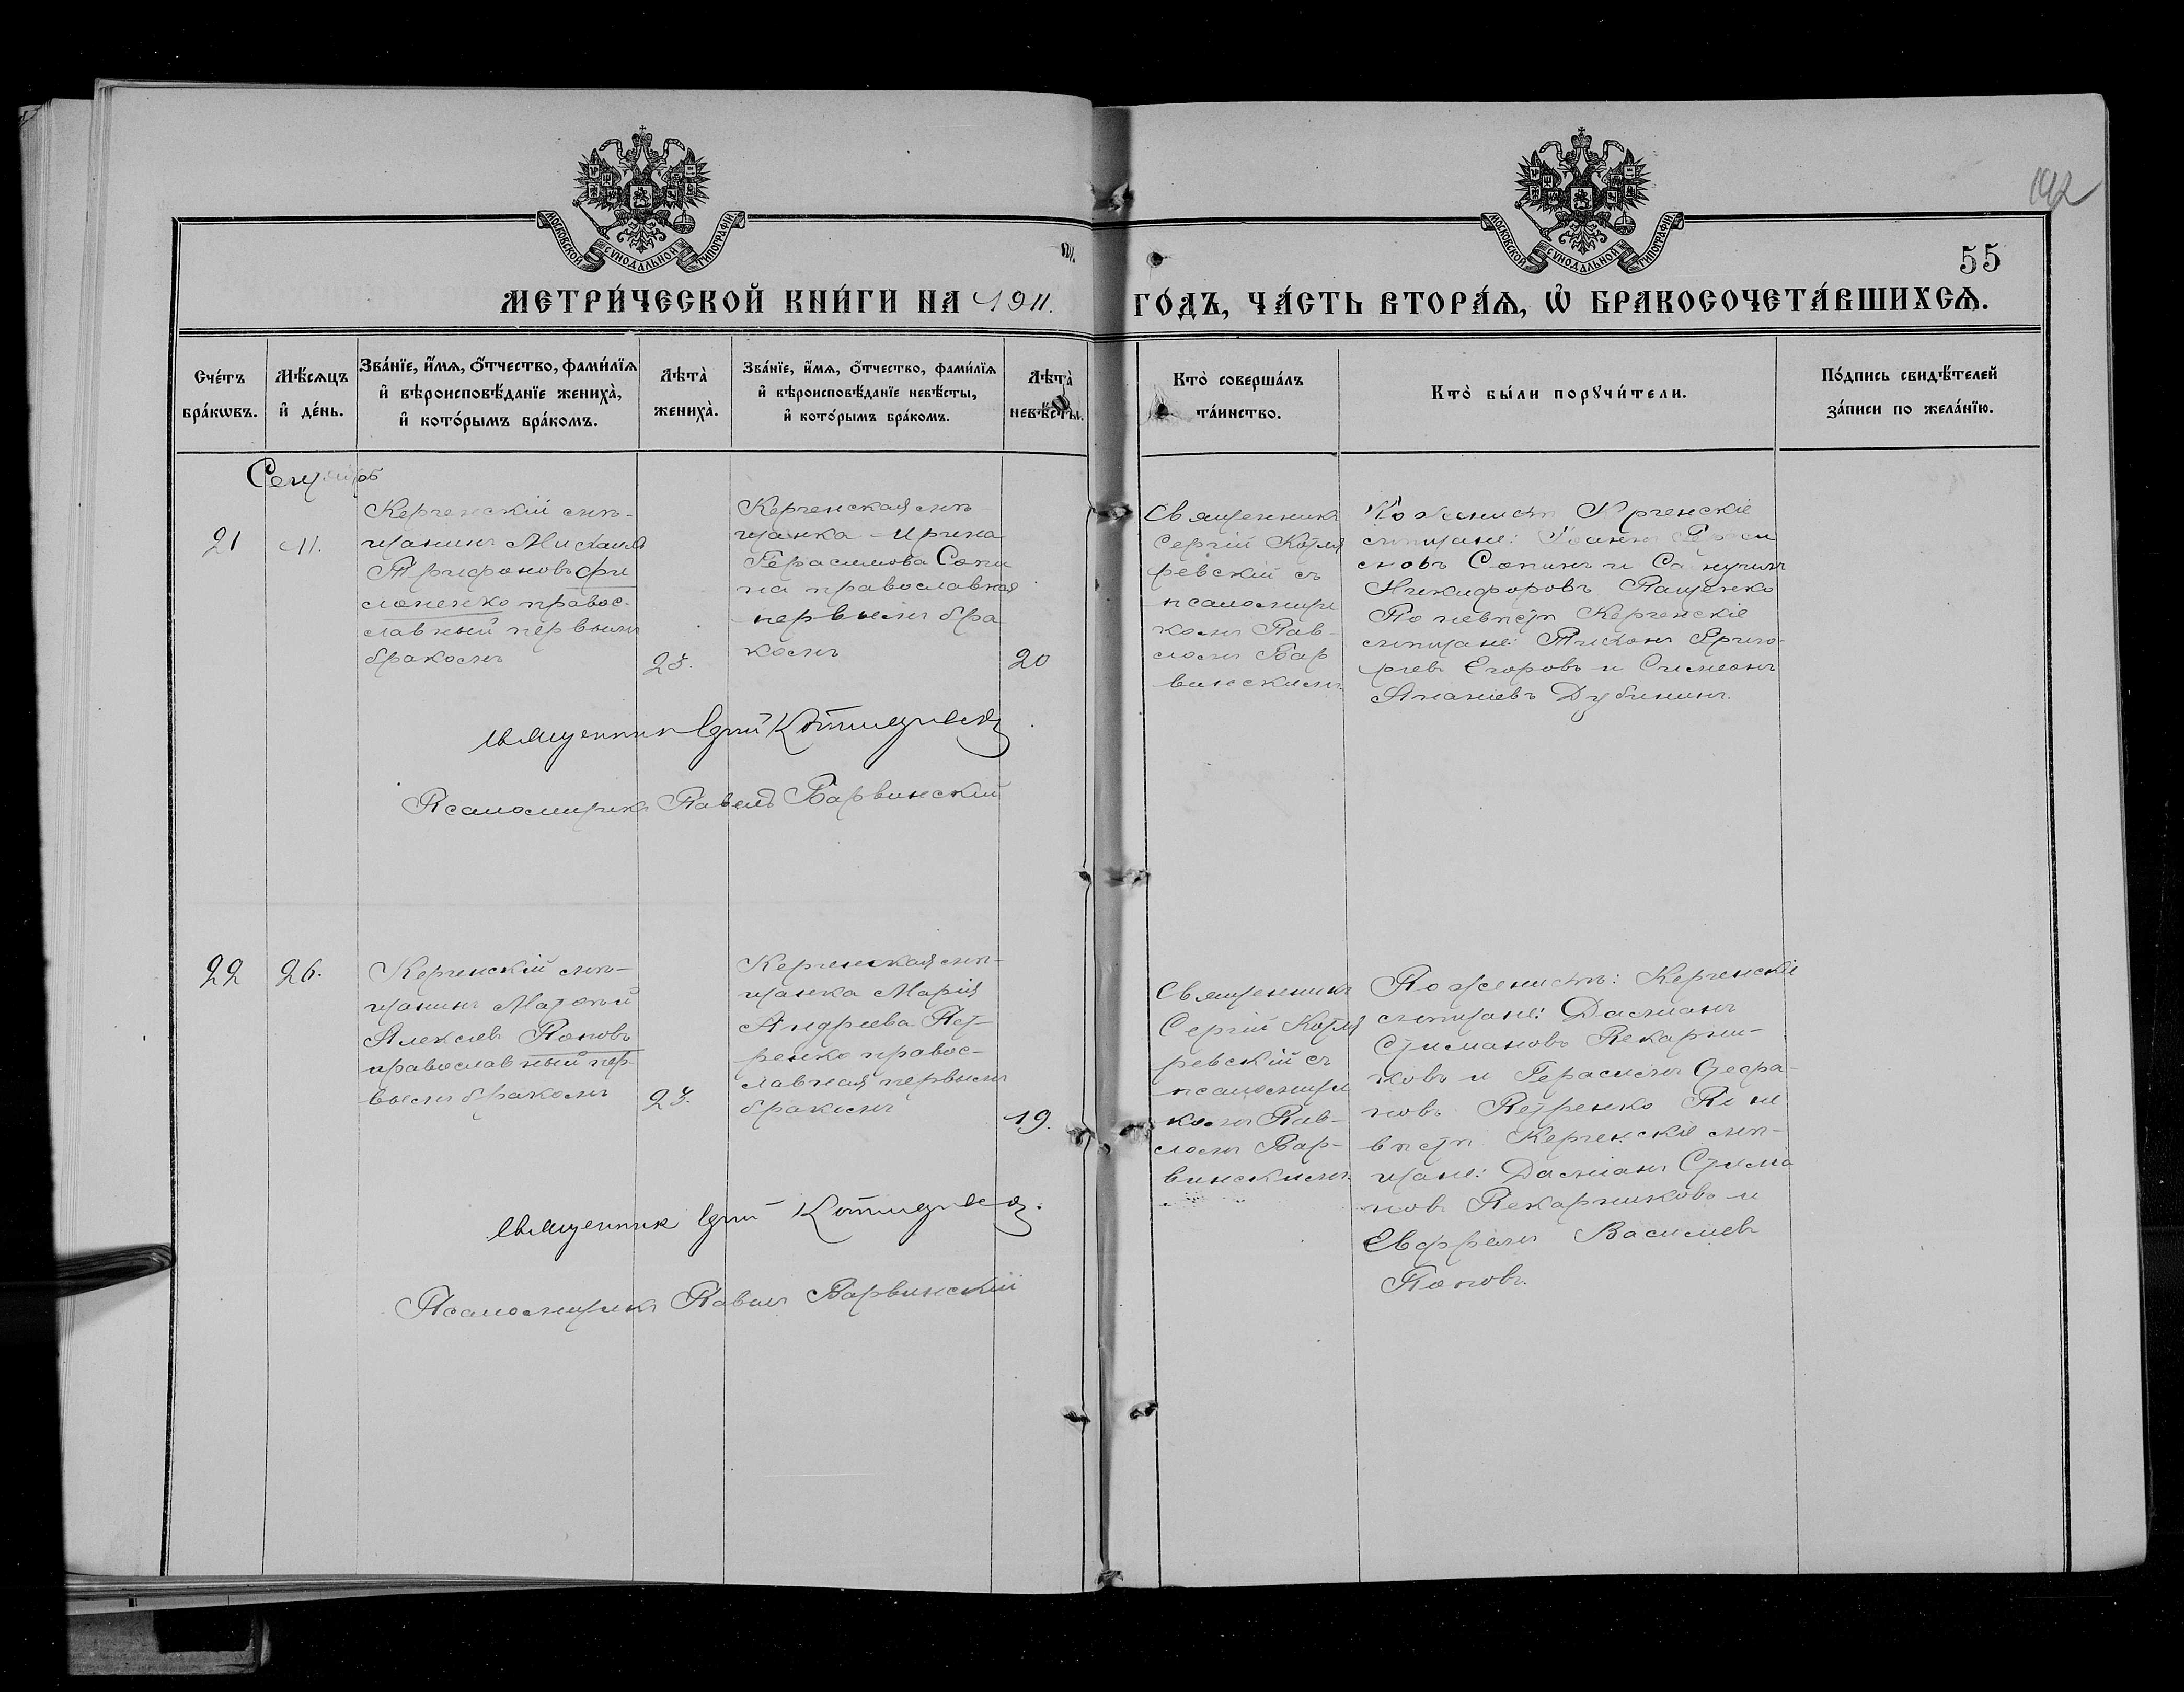 142
МОСКОВСКОЙ СУНОДАЛЬНОЙ ТИПОГРАФІИ
МОСКОВСКОЙ СУНОДАЛЬНОЙ ТИПОГРАФІИ
55
МЕТРИ́ЧЕСКОЙ КНИ́ГИ НА 1911. ГО́ДЪ, ЧА́СТЬ ВТОРА́Ѧ, Ѡ҆ БРАКОСОЧЕТА́ВШИХСѦ.
Сче́тъ
бра́кωвъ.
Мѣ́сѧцъ
и҆ де́нь.
Зва́нїе, и҆́мѧ, ѻ҆́тчество, фами́лїѧ
и҆ вѣроисповѣ́данїе жениха̀,
и҆ кото́рымъ бра́комъ.
Лѣта̀
жениха̀.
Зва́нїе, и҆́мѧ, ѻ҆́тчество, фами́лїѧ
и҆ вѣроисповѣ́данїе невѣ́сты,
и҆ кото́рымъ бра́комъ.
Лѣта̀
невѣ́сты.
Кто̀ соверша́лъ
та́инство.
Кто̀ бы́ли порꙋчи́тели.
По́дпись свидѣ́телей
за́писи по жела́нїю.
Сентябрь
21
11.
Керченскій мѣ-
щанинъ Михаилъ
Трифоновъ Фи
лоненко правос-
славный первымъ
бракомъ
25.
Керченская мѣ-
щанка Ирина
Герасимова Сопи
на православная
первымъ бра
комъ
20
Священникъ
Сергій Котля
ревскій съ
псаломщи
комъ Пав-
ломъ Бар
винскимъ.
По женихѣ Керченскіе
мѣщане: Іоаннъ Гераси
мовъ Сопинъ и
Никифоровъ Пащенко
По невѣстѣ Керченскіе
мѣщане: Тихонъ Григо-
рьев Егоровъ и Симеонъ
Ананіевъ Дубининъ.
Священник Сергий Котляревский
Псаломщикъ Павелъ Барвинскій
22
26.
Керченскій мѣ-
щанинъ Матѳей
Алексѣев Поповъ
православный пер-
вымъ бракомъ
23.
Керченская мѣ-
щанка Марія
Андреева Пет-
ренко правос-
славная первымъ
бракомъ
19.
Священникъ
Сергій Котля
ревскій съ
псаломщи
комъ Пав-
ломъ Бар-
винскимъ.
По женихѣ: Керченскіе
мѣщане: Даміанъ
Пекарни-
ковъ и Герасимъ Стефа-
новъ Петренко По не
вѣстѣ Керченскіе мѣ-
щане: Даміанъ
новъ Пекарниковъ и
Васильев
Поповъ.
Священник Сергий Котляревский.
Псаломщикъ Павелъ Барвинскій